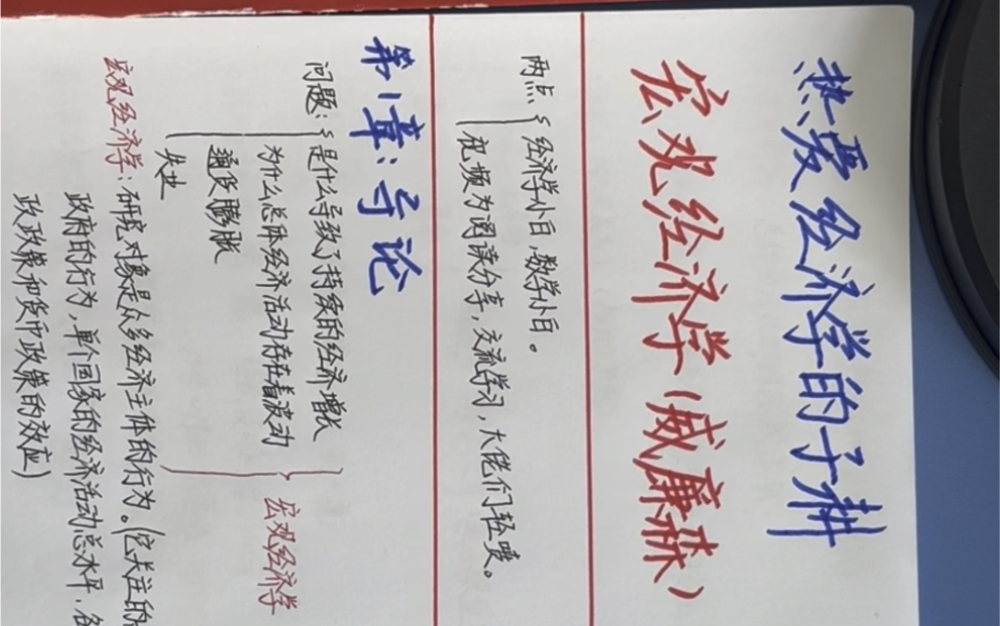 热爱经济学的子耕
宏观经济学(威廉森)
两点{经济学小白,数学小白。
视频为阅读分享,交流学习,大佬们轻喷。
第1章:导论
问题:{是什么导致了持续的经济增长
为什么总体经济活动存在着波动
通货膨胀
失业
}宏观经济学
宏观经济学:研究对象是众多经济主体的行为。(它关注的是
政府的行为,单个国家的经济活动总水平,
政政策和货币政策的效应)